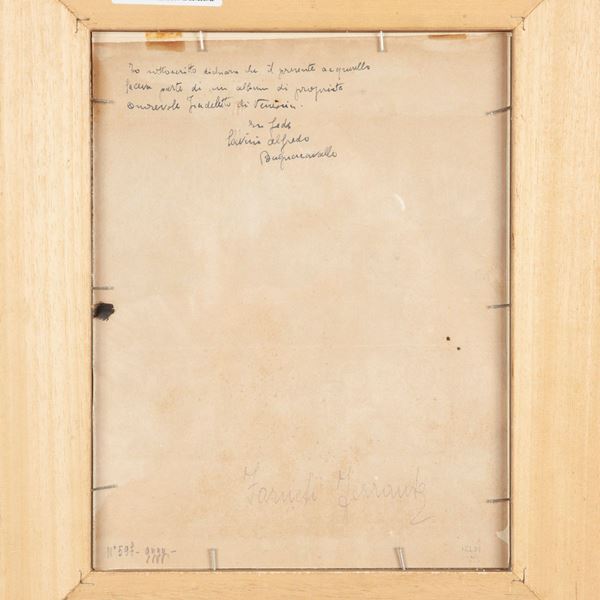 Io sottoscritto dichiara che il presente acquarello
faceva parte di un album di proprietà
onorevole Fradeletto di Venezia.
In fede
Savini Alfredo
Bagnacavallo
Farneti Ferrante
N° 59